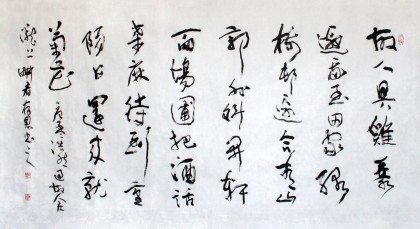 故人具雞黍
邀我至田家綠
樹邨邊合青山
郭外斜開軒
面場圃把酒話
桑麻待到重
陽日還來就
菊花
孟浩然
書之